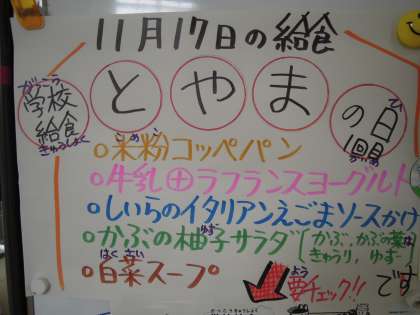 11月17日の給食
学校給食 とやまの日 1回目
がっこう きゅうしょく ひ かいめ
こめこ
○米粉コッペパン
○牛乳⊕ラフランスヨーグルト
○しいらのイタリアンえごまソースかけ
ゆず
○かぶの柚子サラダ [かぶ、かぶの葉は
きゅうり、ゆず
はくさい
○白菜スープ
よう
要チェック!! です